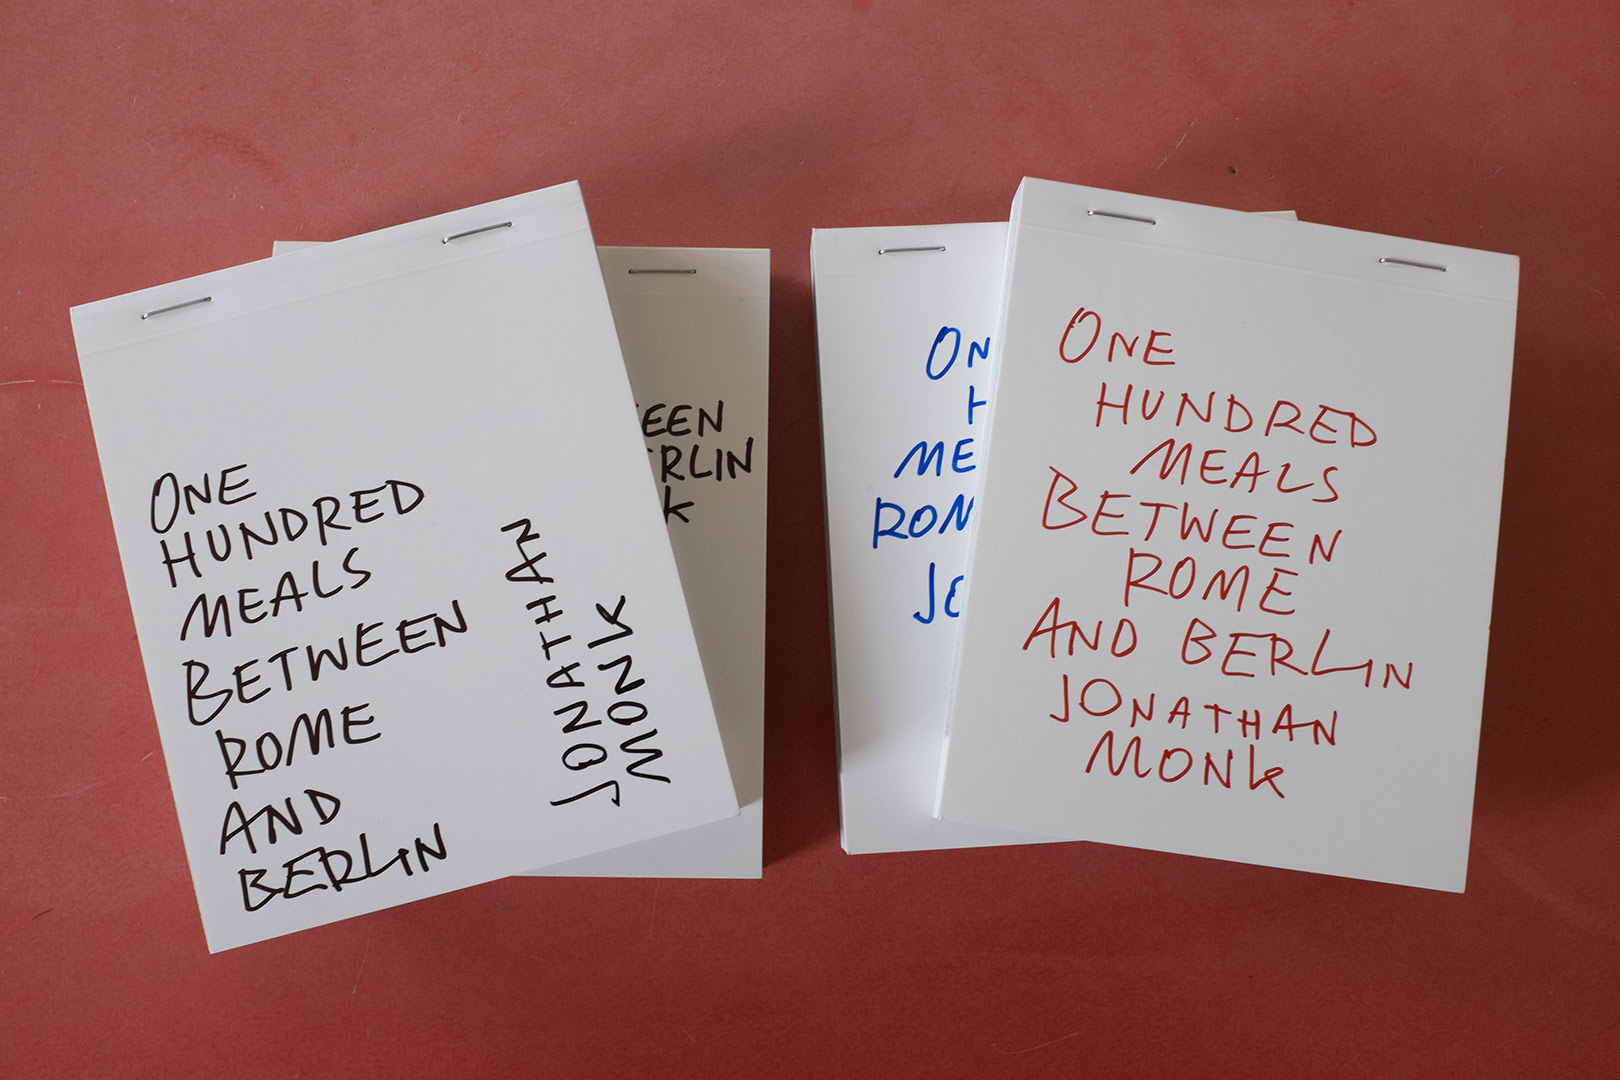 ONE
HUNDRED
MEALS
BETWEEN
ROME
AND
BERLIN
JONATHAN
MONK
EEN
ERLIN
ON
H
ME
ROM
JO
ONE
HUNDRED
MEALS
BETWEEN
ROME
AND BERLIN
JONATHAN
MONK